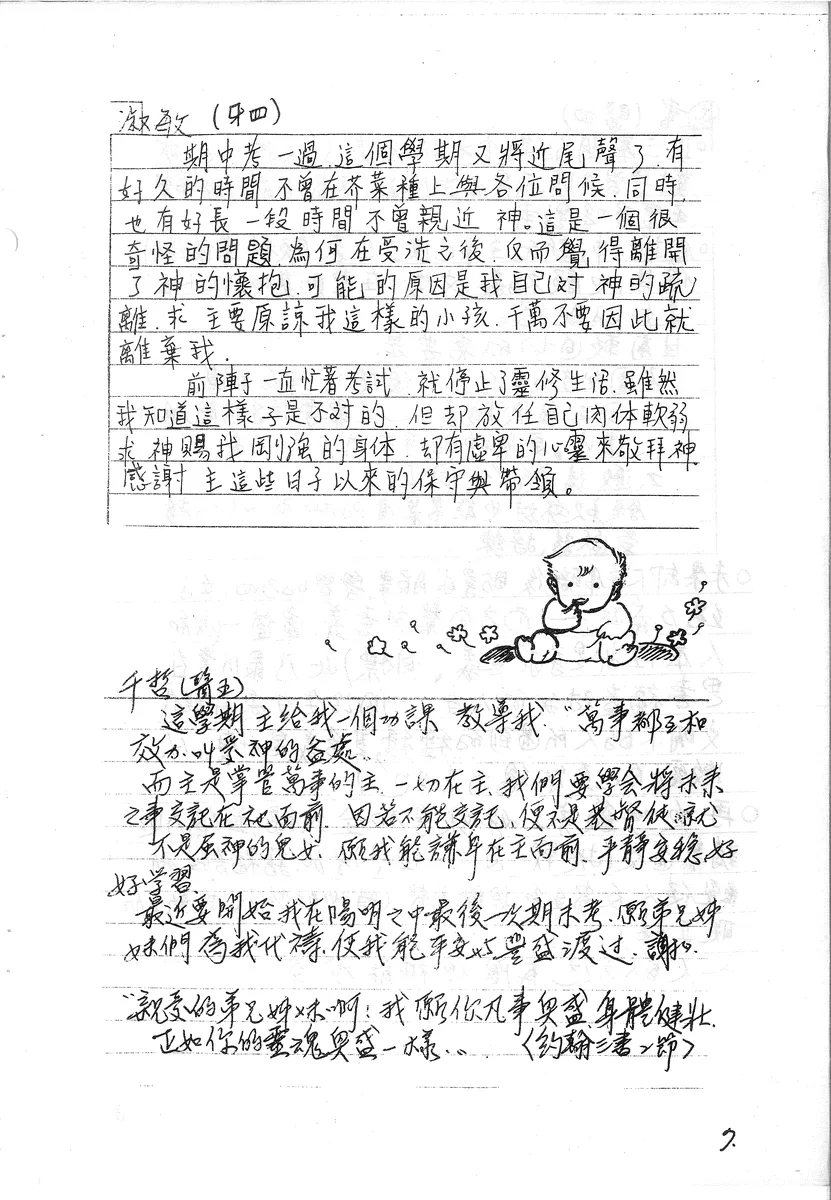 淑敏 (牙四)
期中考一過.這個學期又將近尾聲了.有
好久的時間不曾在芥菜種上與各位問候.同時,
也有好長一段時間不曾親近 神。這是一個很
奇怪的問題.為何在受洗之後.反而覺得離開
了神的懷抱.可能的原因是我自己対 神的疏
離.求 主要原諒我這樣的小孩.千萬不要因此就
離棄我.
前陣子一直忙著考試.就停止了靈修生活.雖然
我知道這樣子是不対的.但却放任自己肉体軟弱
求神賜我剛強的身体.却有虛卑的心靈來敬拜神.
感謝 主這些日子以來的保守與帶領。
千哲(醫五)
這學期主給我一個功課 教導我."萬事都互相
效力.叫愛神的益處..
而主是掌管萬事的主.一切在主.我們要學会將未來
之事交託在祂面前.因若不能交託、便不是基督徒.就
不是屬神的兒女.願我能謙卑在主面前.平靜安穩.好
好学習
最近要開始我在陽明之中最後一次期末考.願弟兄姊
妹們為我代禱.使我能平安与豐盛渡过.謝拉.
"親愛的弟兄姊妹啊!我願你凡事興盛.身體健壯.
正如你的靈魂興盛一樣.." 〈約翰三書2節〉
7.